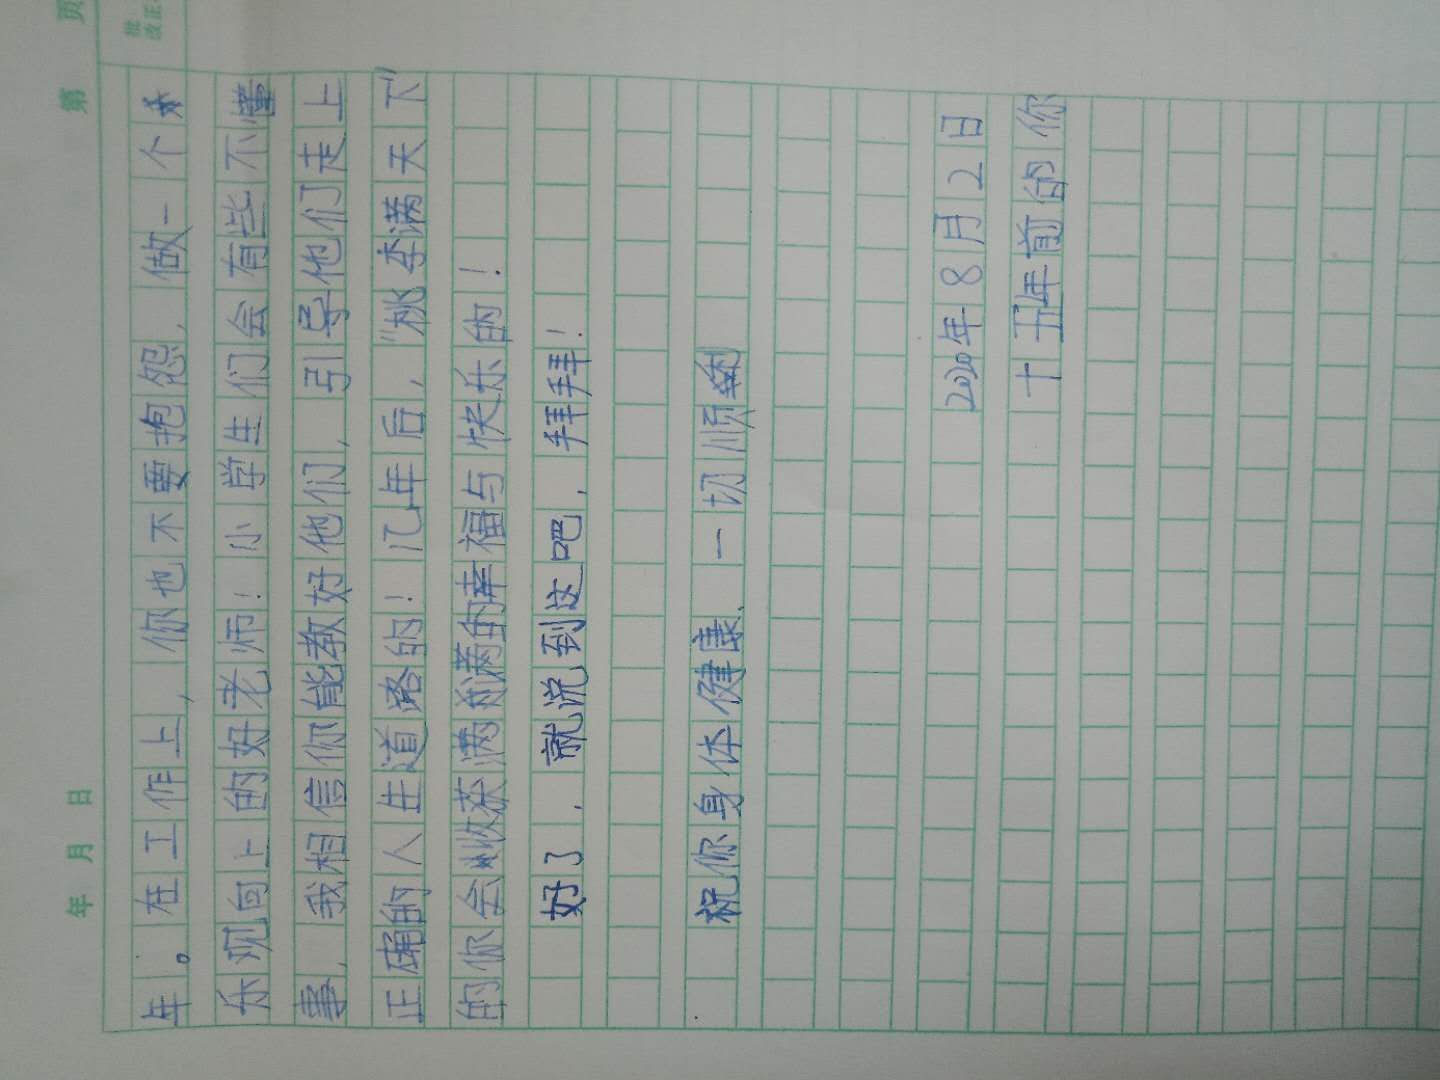 第 页
年 月 日
批改正
年。在工作上，你也不要抱怨，做一个
乐观向上的好老师！小学生们会有些不懂
事，我相信你能教好他们，引导他们走上
正确的人生道路的！几年后，“桃李满天下”
的你会收获满满的幸福与快乐的！
好了，就说到这吧，拜拜！
祝你身体健康、一切顺利
2020年8月2日
十五年前的你